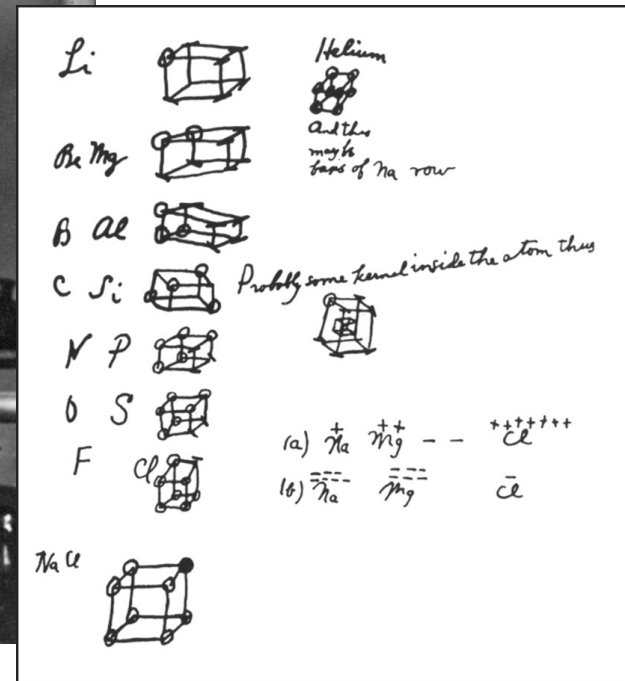 Li
Helium
And this
may be
basis of Na row
Be Mg
B Al
C Si
Probably some kernel inside the atom thus
N P
O S
F Cl
(a) Na + Mg ++ - - Cl +++++++
(b) Na ------- Mg ------ Cl -
Na Cl